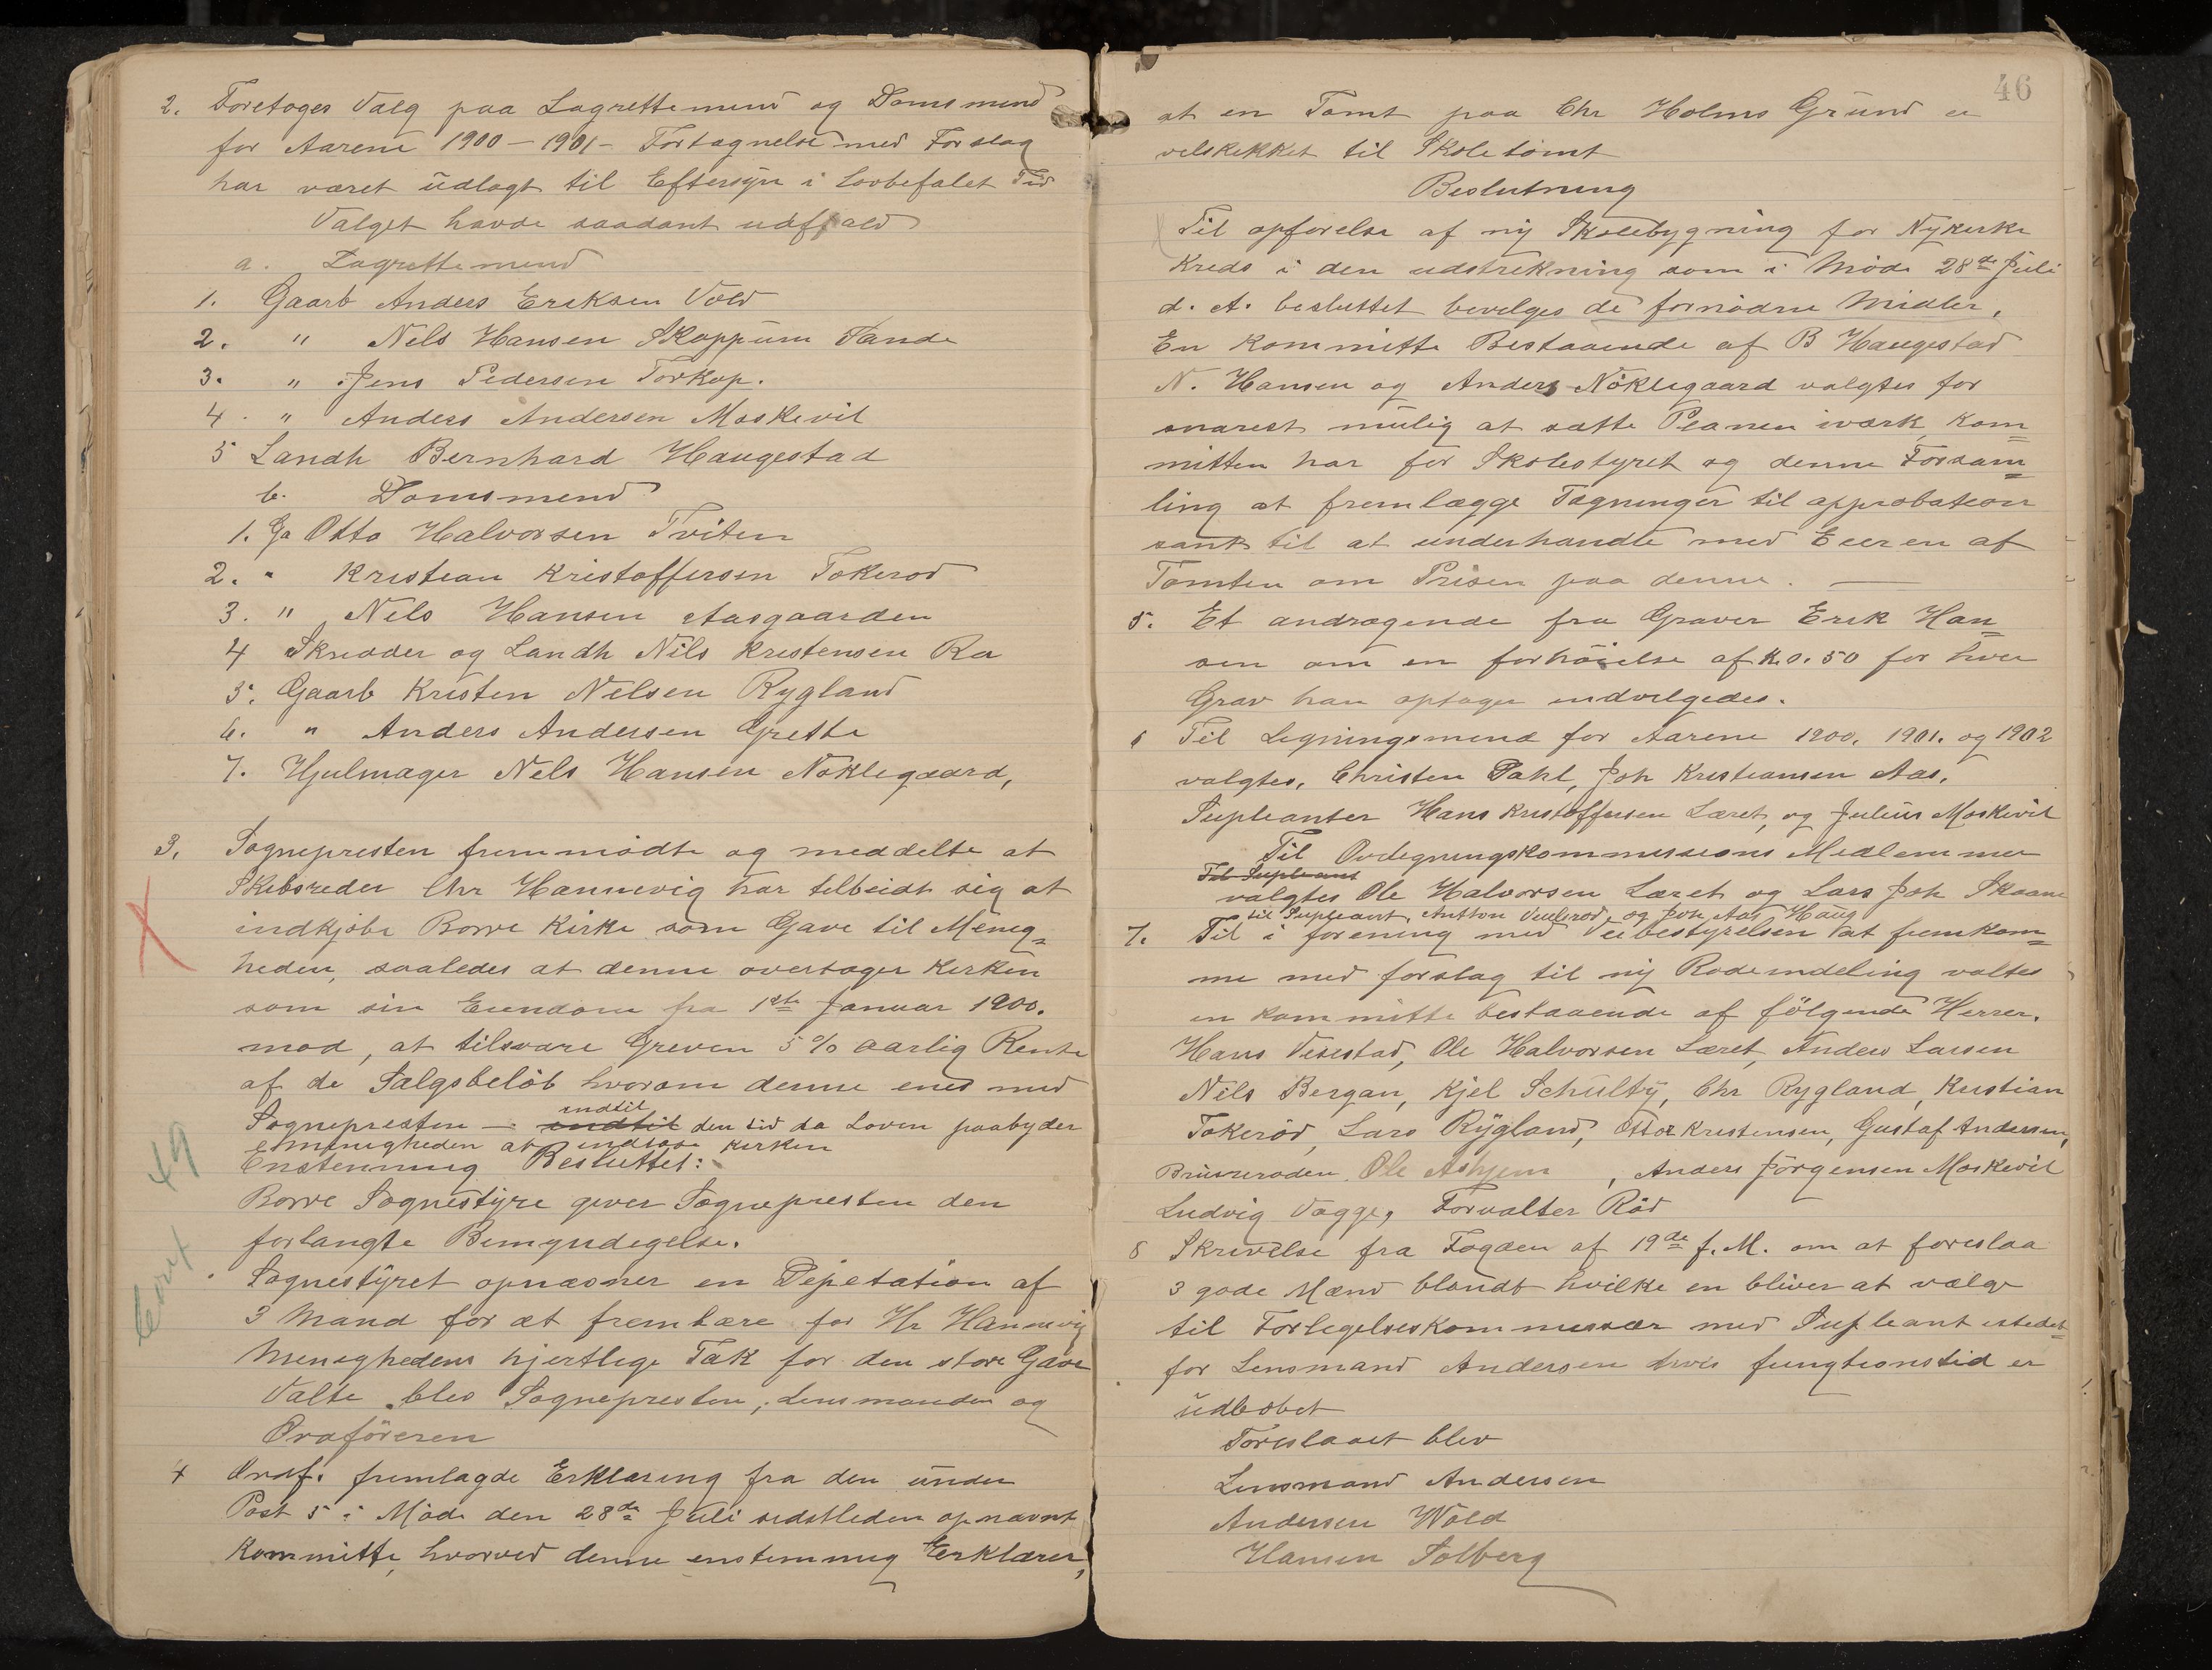 2. Foretoges Valg paa Lagrettemend og Domsmend
for Aarene 1900 – 1901 – Fortegnelse med Forslag
har været udlagt til Eftersyn i Lovbefalet Tid
Valget havde saadant udfald
a. Lagrettemend
1. Gaarb Anders Eriksen Vold
2. " Nels Hansen Skoppum Sande
3. " Jens Pedersen Torkop.
4. " Anders Andersen Moskevil
5 Landh Bernhard Haugestad
b. Domsmend
1. Ga Otto Halvorsen Tviten
2. " Kristian Kristoffersen Tokerød
3. " Nels Hansen Aasgaarden
4 Skredder og Landh Nils Kristensen Ra
5. Gaarb Kristen Nelsen Rygland
6. " Anders Andersen Grette
7. Hjulmager Nels Hansen Nøklegaard,
3. Sognepresten fremmødte og meddelte at
Skibsreder Chr Hannevig har tilbeidt sig at
indkjøbe Borre Kirke som Gave til Menig=
heden, saaledes at denne overtager Kirken
som sin Eiendom fra 1ste Januar 1900.
mod, at tilsvare Greven 5 % aarlig Rente
af de Salgsbeløb hvorom denne enes med
indtil
Sognepresten – indtil den tid da Loven paabyder
menigheden at indløse Kirken
Enstemmig Besluttet:
Borre Sognestyre giver Sognepresten den
forlangte Bemyndigelse.
Sognestyret opnævner en Depetation af
3 Mand for at frembære for Hr Hannevig
Menighedens hjertlige Tak for den store Gave
Valte blev Sognepresten, Lensmanden og
Ordføreren
4 Ordf. fremlagde Erklæring fra den under
Post 5 i Møde den 28de Juli sidstleden opnævnt
Kommitte, hvorved denne enstemmig Erklærer,
49
46
at en Tomt paa Chr Holms Grund er
velskikket til Skoletomt
Beslutning
Til opførelse af ny Skolebygning for Nykirke
Kreds i den udstrekning som i Møde 28de Juli
d. A. besluttet bevilges de fornødne Midler.
En Kommitte Bestaaende af B Haugestad
N. Hansen og Anders Nøklegaard valgtes for
snarest mulig at sætte Planen iværk, Kom=
mitten har for Skolestyret og denne Forsam=
ling at fremlægge Tegninger til approbation
samt til at underhandle med Eieren af
Tomten om Prisen paa denne. —
5. Et andragende fra Graver Erik Han=
sen om en forhøielse af K 0.50 for hver
Grav han optager indvilgedes.
6 Til Ligningsmend for Aarene 1900, 1901. og 1902
valgtes, Christen Dahl, Joh Kristiansen Aas,
Supleanter Hans Kristoffersen Læret, og Julius Moskevil
Til Overligningskommissions Medlemmer
Til Supleant
valgtes Ole Halvorsen Læret og Lars Joh Skaane
til Supleant, Anthon og Joh Aas Haug
7. Til i forening med Veibestyrelsen at fremkom=
me med forslag til ny Rodeindeling valtes
en kommitte bestaaende af følgende Herrer.
Hans Vesestad, Ole Halvorsen Læret, Anders Larsen
Nils Bergan, Kjel Schulty, Chr Rygland, Kristian
Tokerød, Lars Rygland, Otto Kristensen, Gustaf Andersen,
Bruserøden, Ole Askjem, Anders Jørgensen Moskevil
Ludvig Vagge, Forvalter Rød
8 Skrivelse fra Fogden af 19de f. M. om at foreslaa
3 gode Mænd blandt hvilke en bliver at vælge
til Forlegelseskommissær med Supleant istedet=
for Lensmand Andersen hvis fungtionstid er
udløbet
Foreslaaet blev
Lensmand Andersen
Andersen Wold
Hansen Solberg